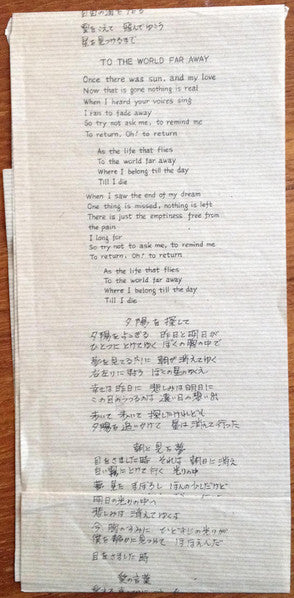 愛を見つけるまで
TO THE WORLD FAR AWAY
Once there was sun, and my love
Now that is gone nothing is real
When I heard your voices sing
I ran to fade away
So try not ask me, to remind me
To return, Oh! to return
As the life that flies
To the world far away
Where I belong till the day
Till I die
When I saw the end of my dream
One thing is missed, nothing is left
There is just the emptiness free from
the pain
I long for
So try not to ask me, to remind me
To return, Oh! to return
As the life that flies
To the world far away
Where I belong till the day
Till I die
夕陽を探して
夕陽をよぎる 昨日と明日が
ひとつにとけてゆく ぼくの胸の中で
夢を見てるだけに 朝が消えてゆく
昨日に 悲しみは明日に
この目にうつるのは 遠い日の想い出
歩いて 歩いて 探したけれども
夕陽を追いかけて 消えて行った
朝に見る夢
目をさました時 それは 朝日に消え
白い にとけて行く 光りの中
まぼろし ほんの少しだけど
明日の光りの中へ
悲しみは 消えてゆくよ
今 胸のすみに
僕を静かに見つめて ほほえんだ
目をさました時
愛の言葉